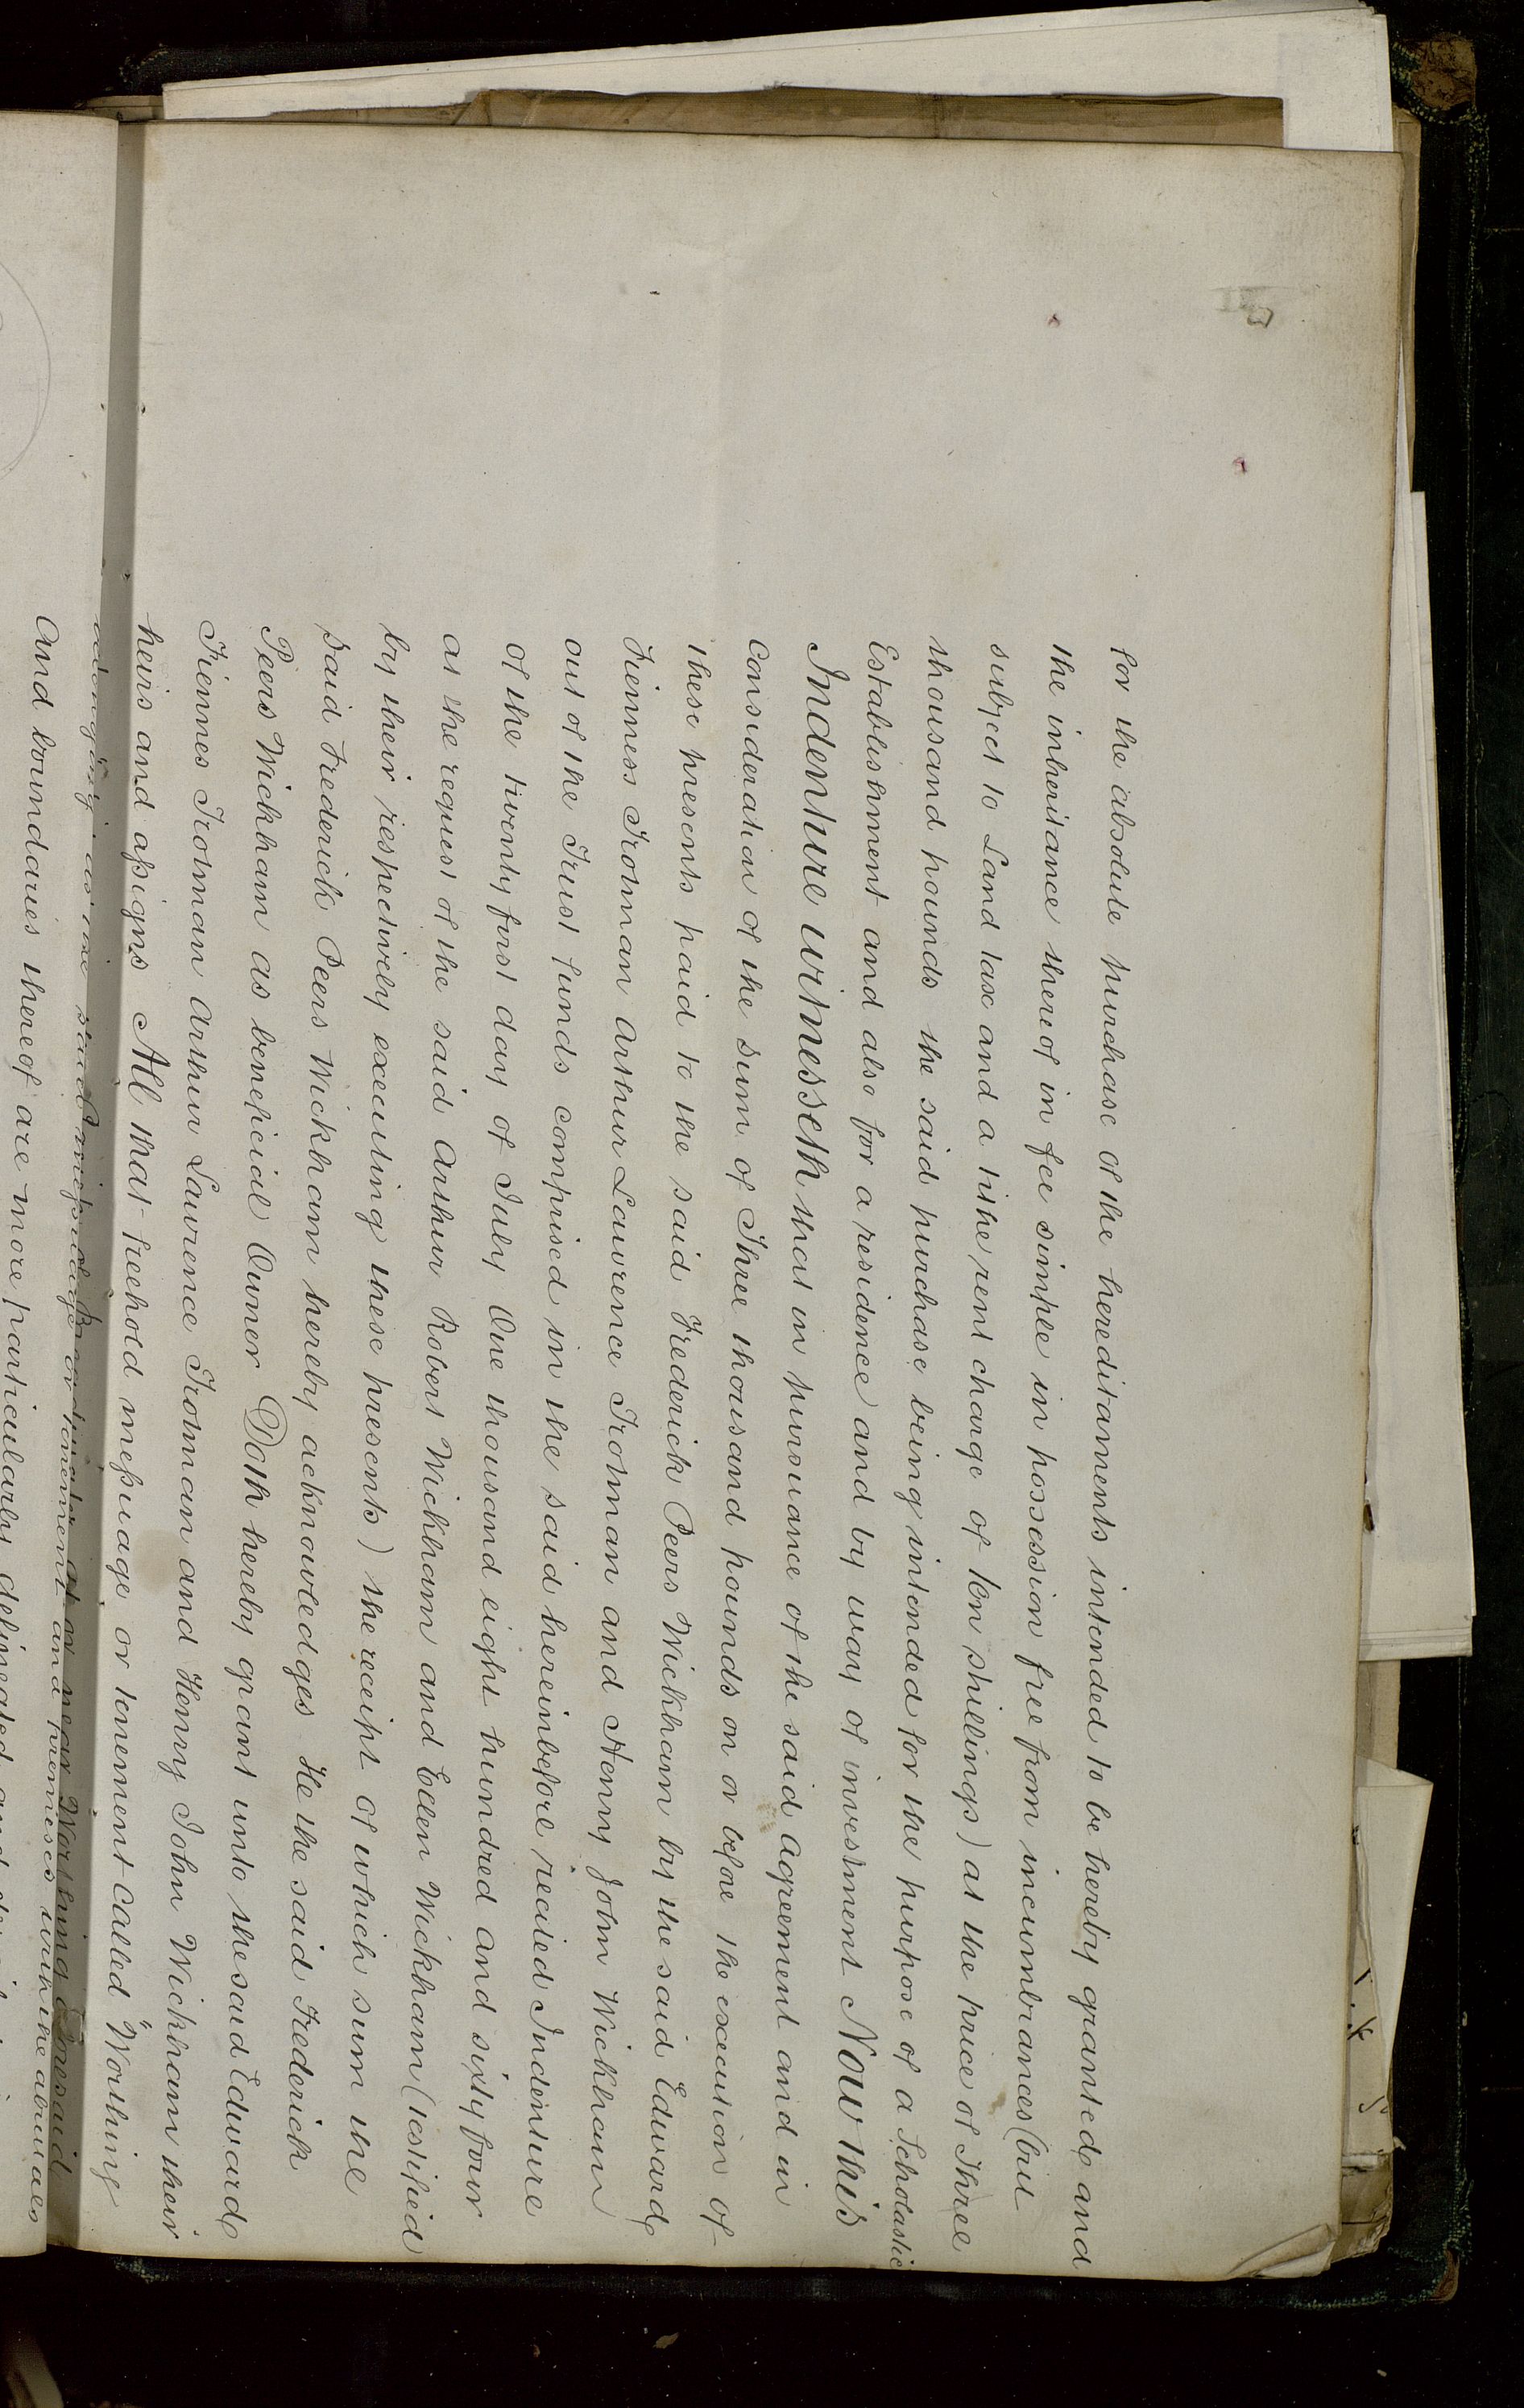 for the absolute purchase of the hereditaments intended to be hereby granted and
the inheritance thereof in fee simple in possession free from incumbrances (but
subject to Land tax and a tithe rent charge of ten shillings) at the price of Three
thousand pounds the said purchase being intended for the purpose of a Scholastic
Establishment and also for a residence and by way of investment Now this
Indenture witnesseth that in pursuance of the said Agreement and in
Consideration of the Sum of Three thousand pounds on or before the execution of
these presents paid to the said Frederick Peers Wickham by the said Edward
Fienness Trotman Arthur Lawrence Trotman and Henry John Wickham
out of the Trust funds comprised in the said hereinbefore recited Indenture
of the twenty first day of July One thousand eight hundred and sixty four
at the request of the said Arthur Robert Wickham and Ellen Wickham (testified
by their respectively executing these presents) the receipt of which sum the
said Frederick Peers Wickham hereby acknowledges He the said Frederick
Peers Wickham as beneficial Owner Doth hereby grant unto the said Edward
Fiennes Trotman Arthur Lawrence Trotman and Henry John Wickham their
heirs and assigns All that freehold messuage or tenement called "Worthing
at or near Worthing aforesaid
as the said messuage or tenement and premises with the abuttals
And boundaries thereof are more particularly delineated and